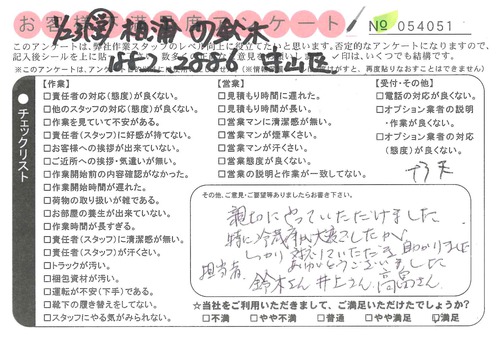 お客様満足度アンケート № 054051
1/23 相浦 の鈴木
このアンケートは、弊社作業スタッフのレベル向上に役立てたいと思います。否定的なアンケートになりますので、
チェックリスト
【作業】
□責任者の対応(態度)が良くない。
□他のスタッフの対応(態度)が良くない。
□作業を見ていて不安がある。
□責任者(スタッフ)に好感が持てない。
□お客様への挨拶が出来ていない。
□ご近所への挨拶・気遣いが無い。
□作業開始前の内容確認がなかった。
□作業開始時間が遅れた。
□荷物の取り扱いが雑である。
□お部屋の養生が出来ていない。
□作業時間が長すぎる。
□責任者(スタッフ)に清潔感が無い。
□責任者(スタッフ)が汗くさい。
□トラックが汚い。
□梱包資材が汚い。
□運転が不安(下手)である。
□靴下の履き替えをしてない。
□スタッフにやる気がみられない。
【営業】
□見積もり時間に遅れた。
□見積もり時間が長い。
□営業マンに清潔感が無い。
□営業マンが煙草くさい。
□営業マンが汗くさい。
□営業態度が良くない。
□営業の説明と作業が一致してない。
【受付・その他】
□電話の対応が良くない。
□オプション業者の説明
・作業が良くない。
□オプション業者の対応
(態度)が良くない。
その他、ご意見・ご要望等ありましたらお書き下さい。
親切にやっていただけました
特に冷蔵庫が大変でしたが、
しっかり対応していただき助かりました
ありがとうございました
担当者 鈴木さん 井上さん 高畠さん
☆当社をご利用いただきまして、ご満足いただけたでしょうか?
□不満 □やや不満 □普通 □やや満足 ☑満足